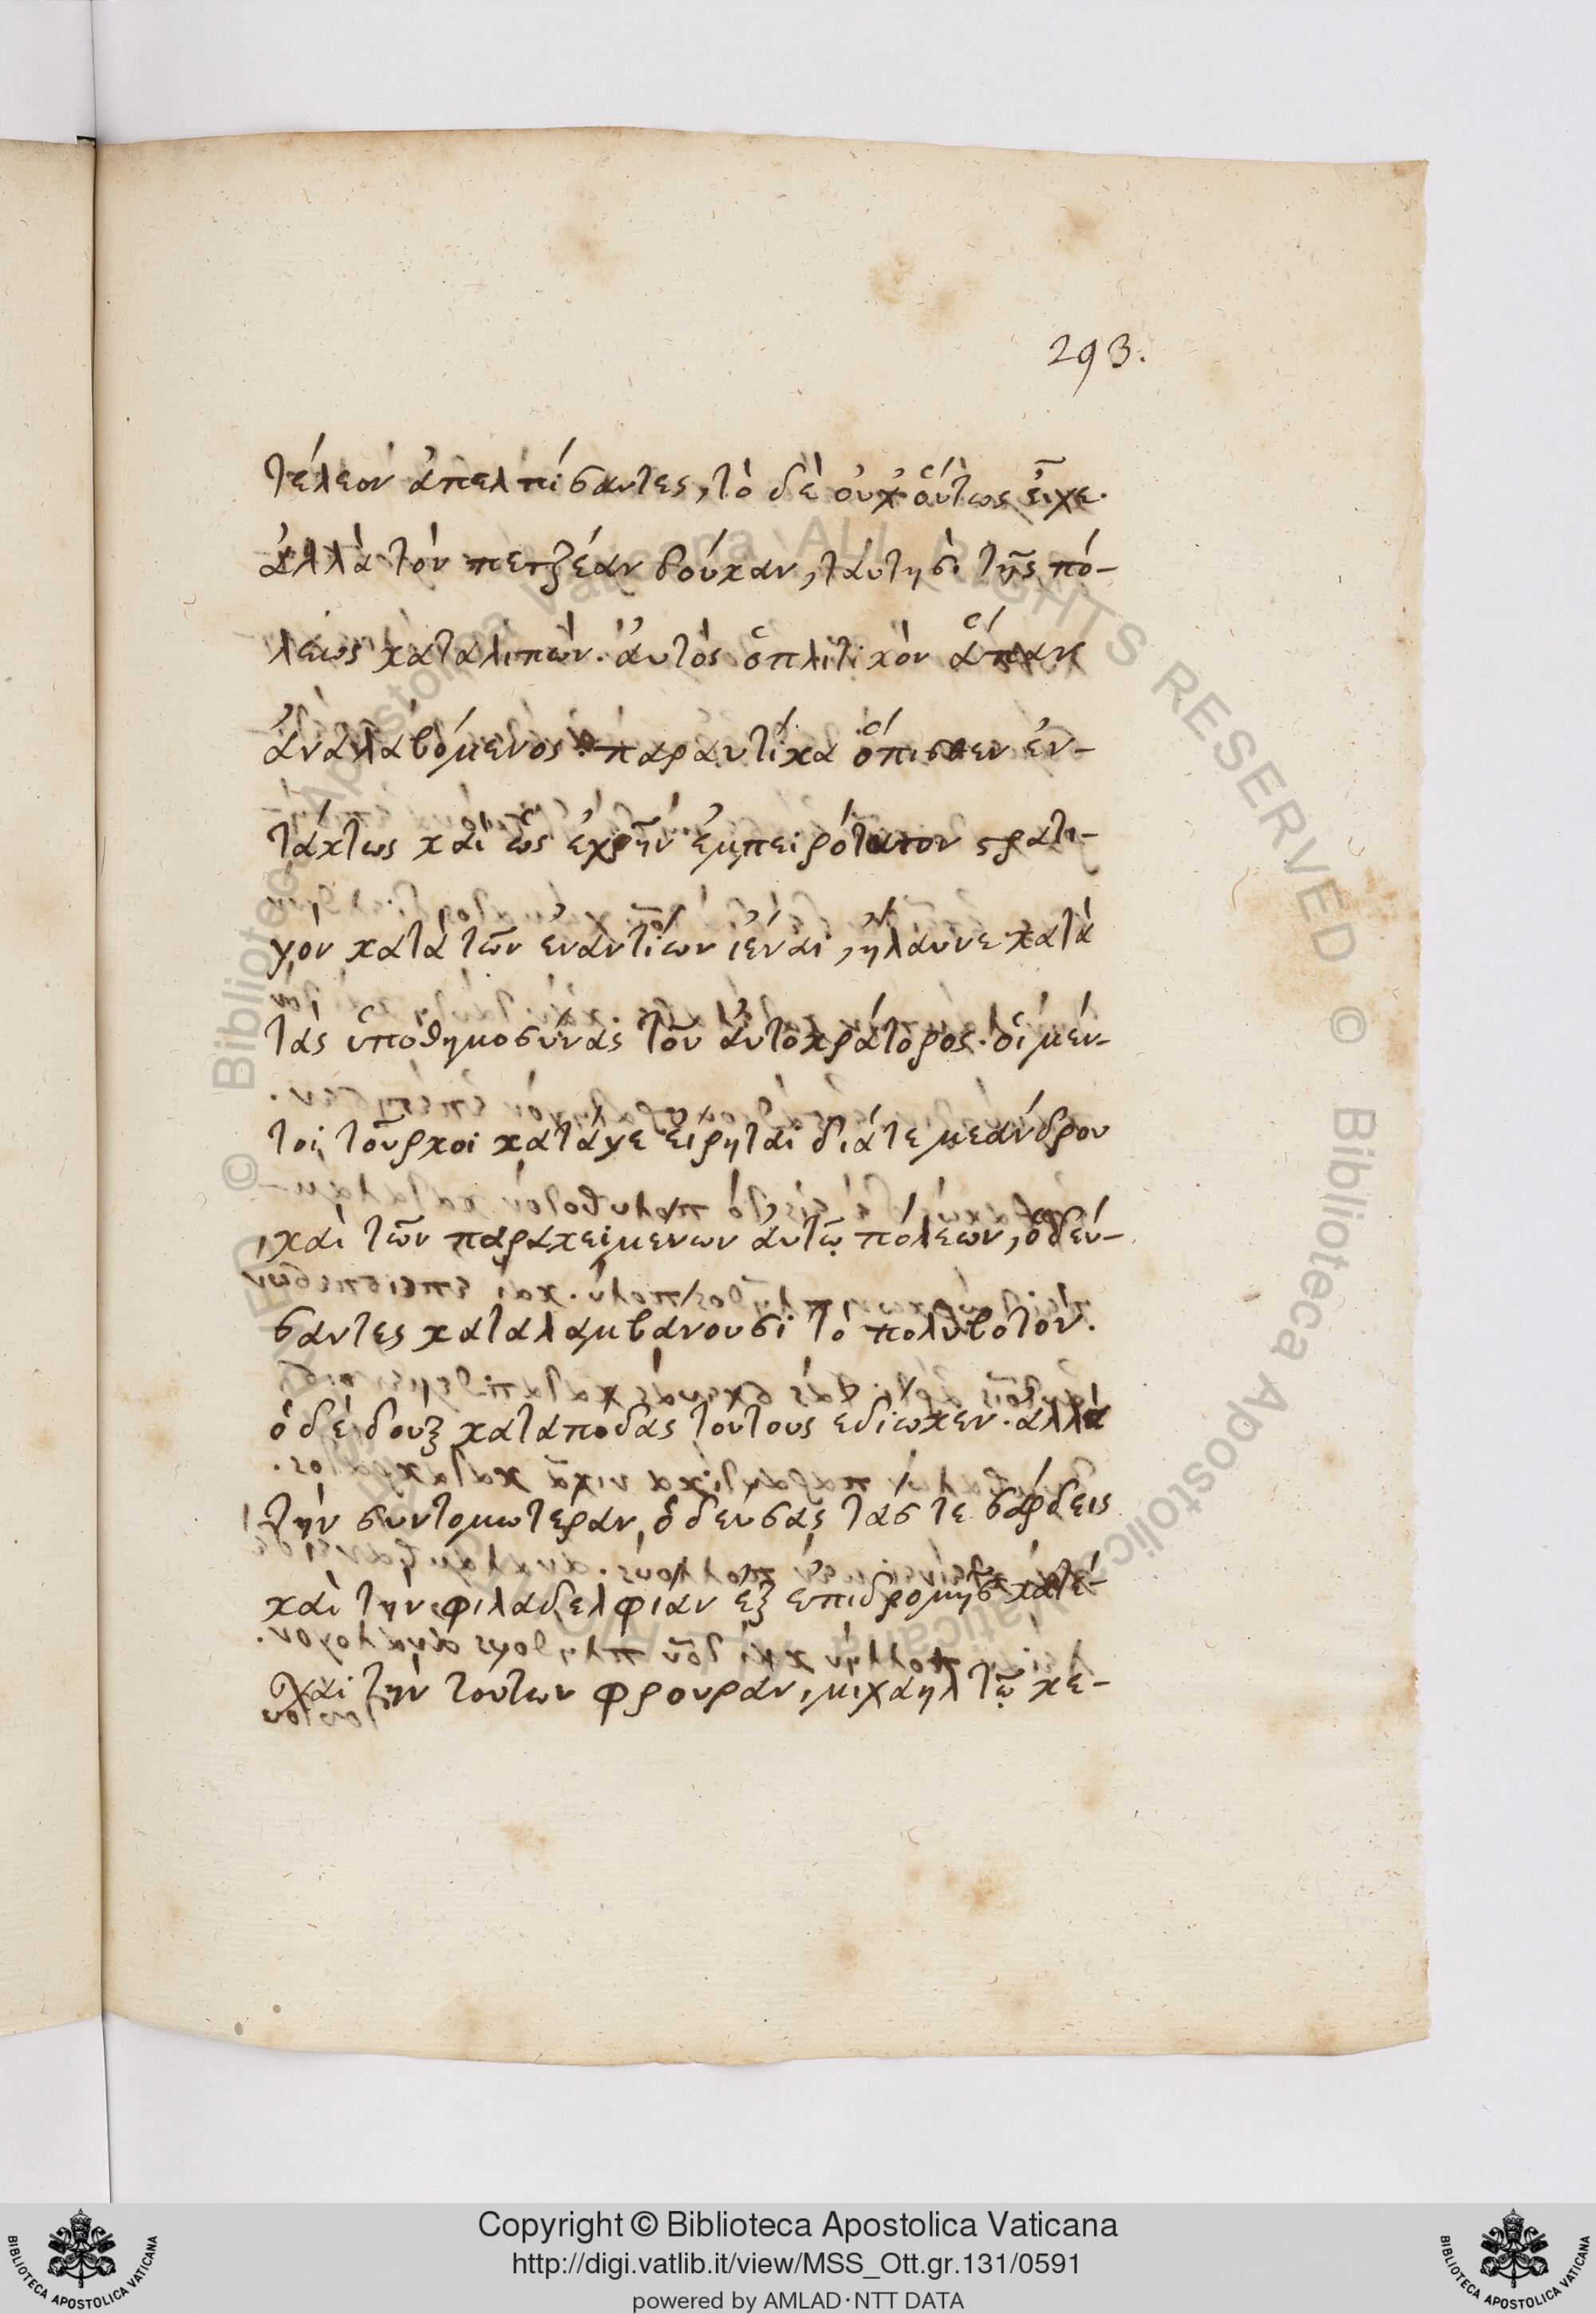 293.
τέλεον ἀπελπίσαντες, τὸ δὲ οὐχ οὕτως εἶχε.
ἀλλὰ τὸν πετζέαν δούκαν, ταύτησὶ τῆς πό-
λεως καταλιπὼν. ἀυτὸς ὁπλιτικὸν ἅπαν
ἀναλαβόμενος παραυτίκα ὅπισθεν ἐν-
τάκτως καὶ ὡς ἐχρῆν ἐμπειρότατον στρατη-
γὸν κατὰ τῶν ἐναντίων ἰέναι, ἤλαυνε κατὰ
τὰς ὑποθημοσύνας τοῦ ἀυτοκράτορος. ὁι μέν-
τοι τοῦρκοι κατάγε εἴρηται διάτε μεάνδρου
καὶ τῶν παρακειμένων ἀυτῷ πόλεων, ὁδεύ-
σαντες καταλαμβάνουσι τὸ πολύβοτον.
ὁ δὲ δοὺξ καταπόδας τούτους εδίωκεν. αλλὰ
τὴν συντομωτέραν ὁδεύσας τάς τε σάρδεις
καὶ τὴν φιλαδελφίαν ἐξ επιδρομῆς κατέ-
καὶ τὴν τούτων φρουρὰν, μιχαὴλ τῷ κε-
Copyright © Biblioteca Apostolica Vaticana
http://digi.vatlib.it/view/MSS_Ott.gr.131/0591
powered by AMLAD·NTT DATA